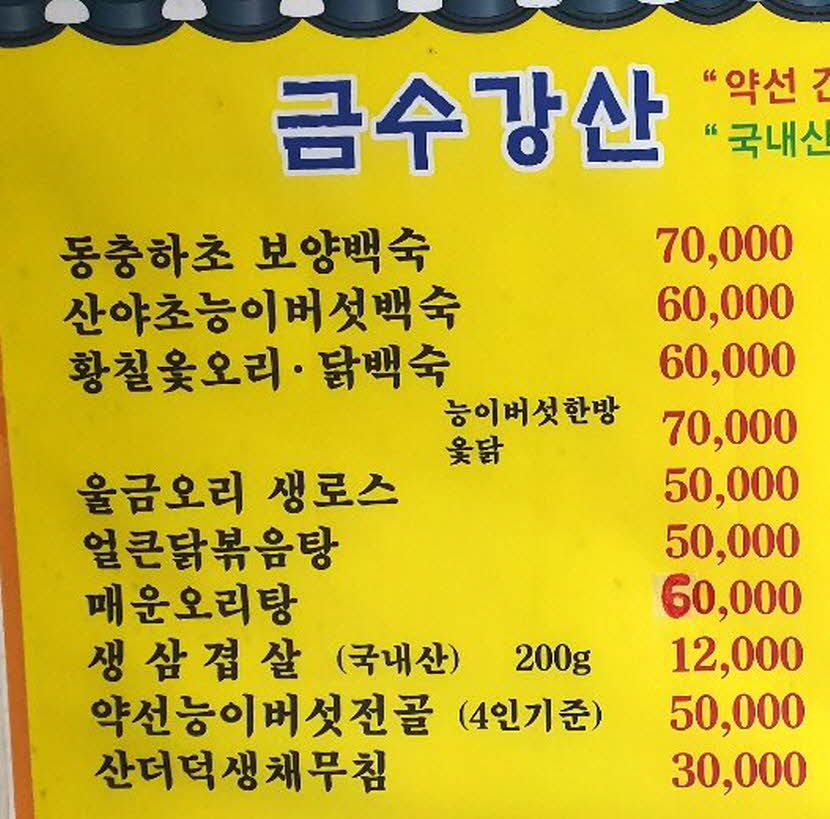 금수강산
“약선
“국내산
동충하초 보양백숙 70,000
산야초능이버섯백숙 60,000
황칠옻오리·닭백숙 60,000
능이버섯한방
옻닭 70,000
울금오리 생로스 50,000
얼큰닭볶음탕 50,000
매운오리탕 60,000
생삼겹살 (국내산) 200g 12,000
약선능이버섯전골 (4인기준) 50,000
산더덕생채무침 30,000